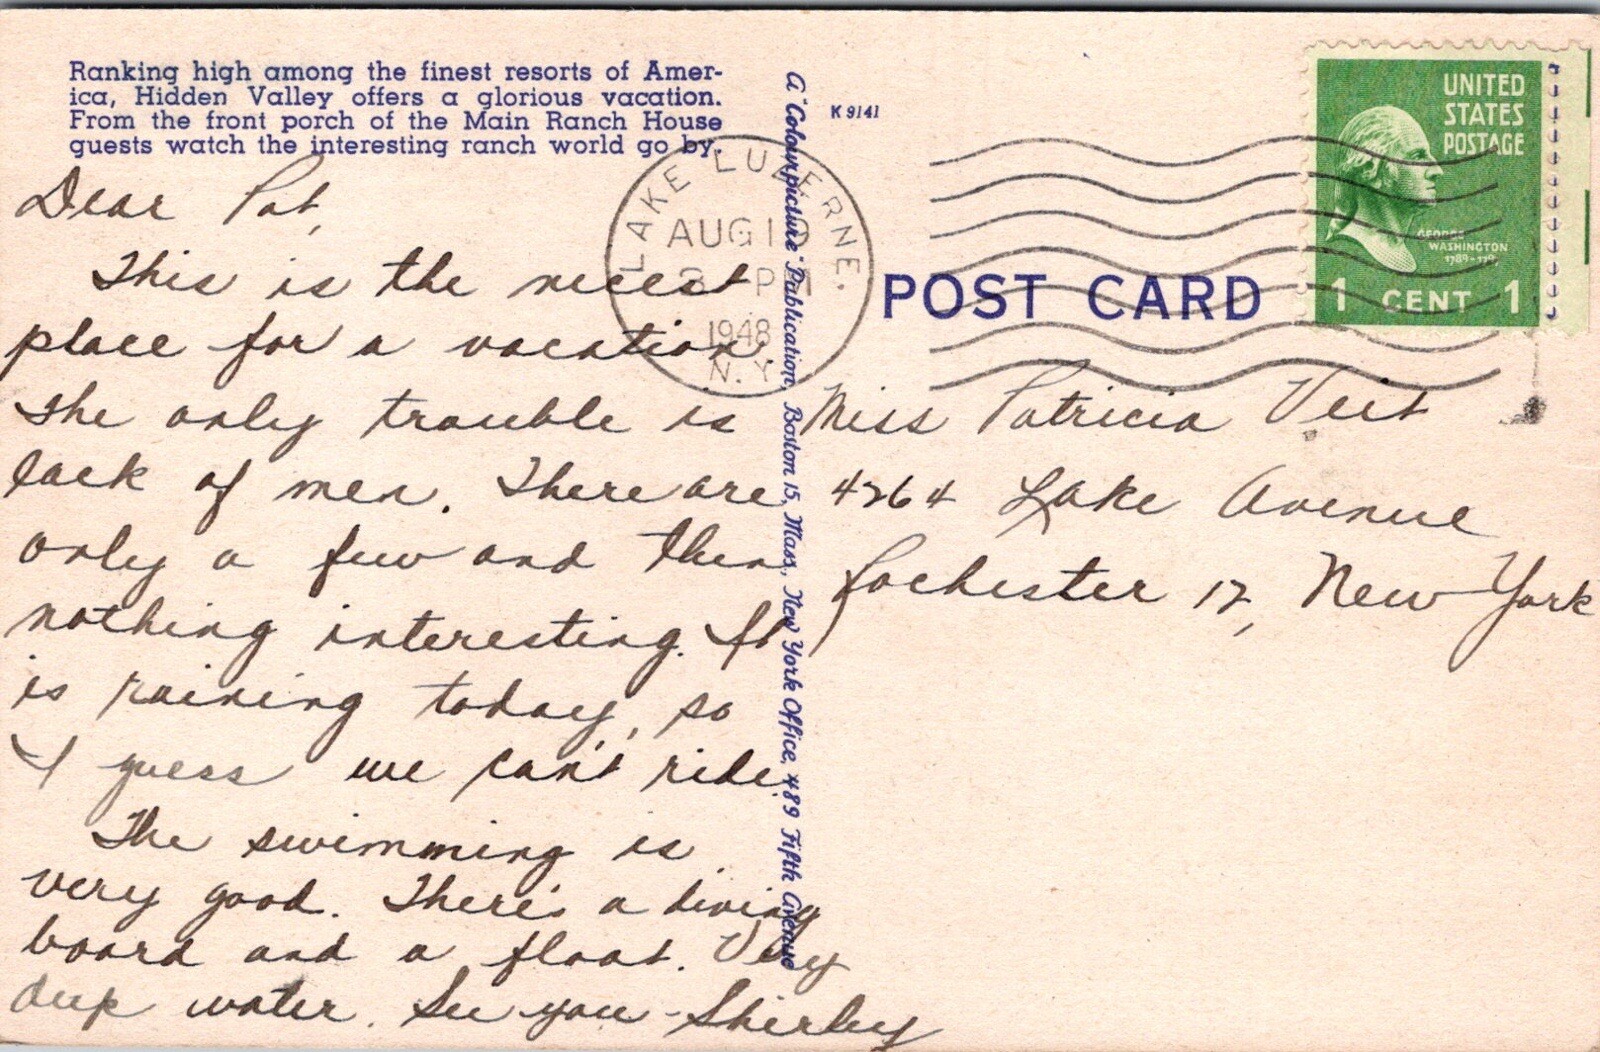 Ranking high among the finest resorts of Amer-
ica, Hidden Valley offers a glorious vacation.
From the front porch of the Main Ranch House
guests watch the interesting ranch world go by.
Dear Pat,
This is the nicest
place for a vacation.
The only trouble is
lack of men. There are
only a few and then
nothing interesting. It
is raining today, so
I guess we can't ride.
The swimming is
very good. There's a diving
board and a float. Very
deep water. See you - Shirley
A "Colourpicture" Publication, Boston 15, Mass., New York Office, 489 Fifth Avenue
K 9141
LAKE LUZERNE.
AUG 19
PM
1948
N.Y.
POST CARD
UNITED
STATES
POSTAGE
GEORGE
WASHINGTON
1789-1797
1 CENT 1
Miss Patricia Veit
4264 Lake Avenue
Rochester 12, New York